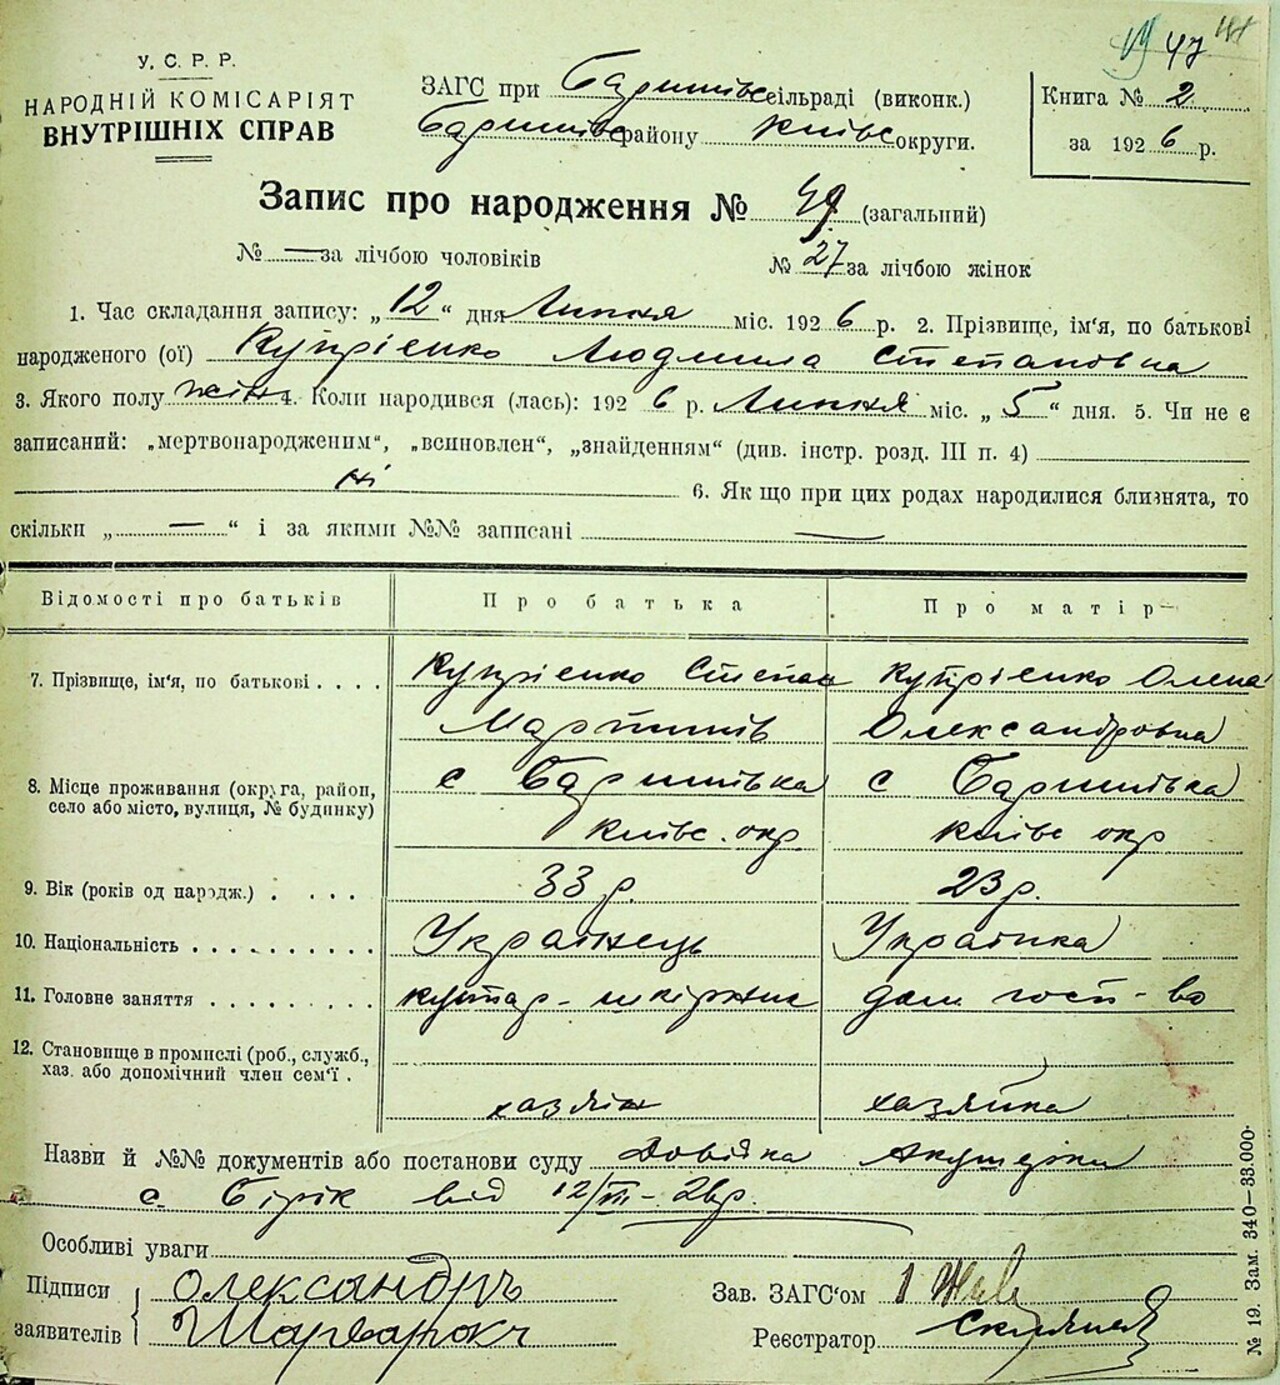 47
У. С. Р. Р.
НАРОДНІЙ КОМІСАРІЯТ
ВНУТРІШНІХ СПРАВ
ЗАГС при Баришівс сільраді (виконк.)
Баришівс району Київс округи.
Книга № 2
за 1926 р.
Запис про народження № 49 (загальний)
№ — за лічбою чоловіків № 27 за лічбою жінок
1. Час складання запису: „12“ дня Липня міс. 1926 р. 2. Прізвище, ім'я, по батькові
народженого (ої) Купрієнко Людмила Степановна
3. Якого полу жін. 4. Коли народився (лась): 1926 р. Липня міс. „5“ дня. 5. Чи не є
записаний: „мертвонародженим“, „всиновлен“, „знайденням“ (див. інстр. розд. III п. 4)
ні 6. Як що при цих родах народилися близнята, то
скільки „—“ і за якими №№ записані —
Відомості про батьків Про батька Про матір
7. Прізвище, ім'я, по батькові . . . . Купрієнко Степан Купрієнко Олена
Мартинів Олександровна
8. Місце проживання (округа, район, с Баришівка с Баришівка
село або місто, вулиця, № будинку)
Київс. окр. Київс окр
9. Вік (років од народж.) . . . . 33 р. 23 р.
10. Національність . . . . . . . . . . Українець Українка
11. Головне заняття . . . . . . . . . кустар - шкіряник дом. госп-во
12. Становище в промислі (роб., служб.,
хаз. або допомічний член сем'ї .
хазяїн хазяйка
Назви й №№ документів або постанови суду Довідка Акушерки
с. від 12/ - 26 р.
Особливі уваги
Підписи Олександръ
заявителів
Зав. ЗАГС'ом
Реєстратор
№ 19. Зам. 340—33.000.